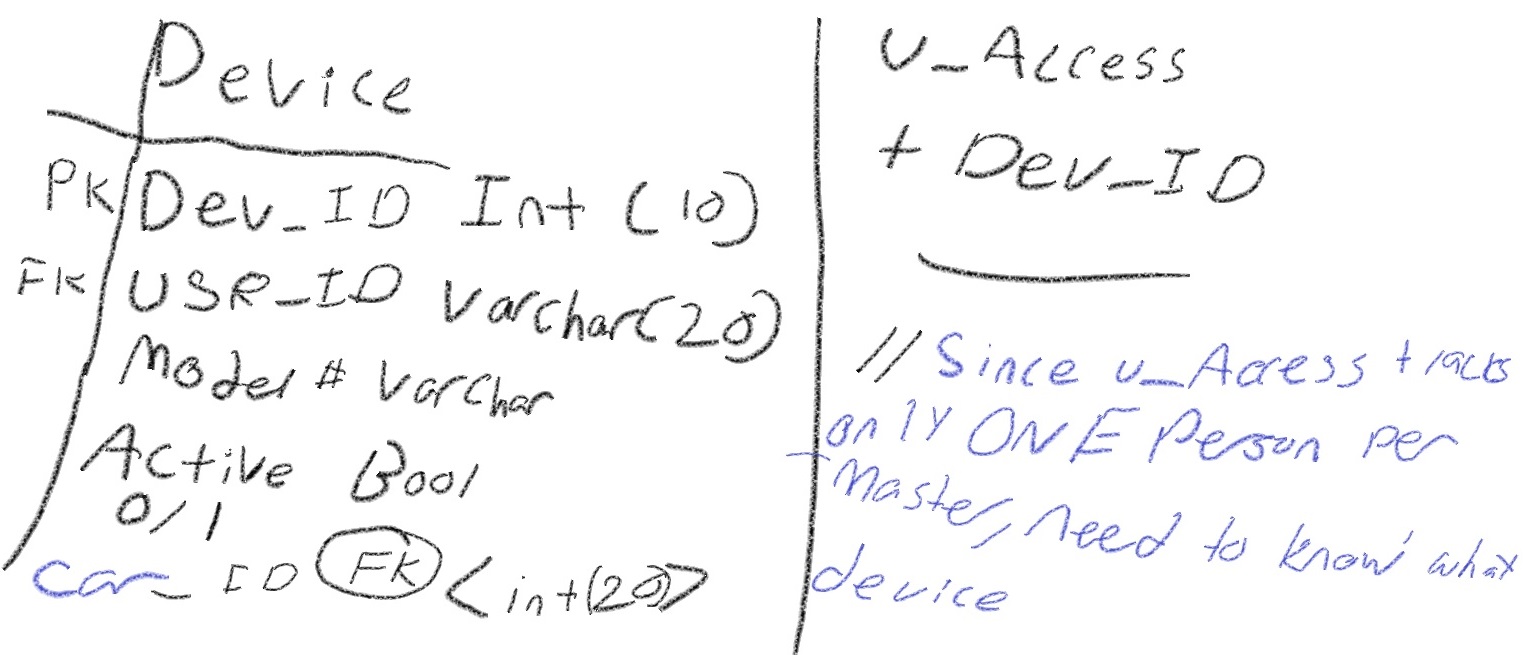 Device
PK Dev_ID Int (10)
FK USR_ID Varchar(20)
Model # Varchar
Active Bool
0/1
Car_ID FK <int(20)>
U_Access
+ Dev_ID
// Since u_Access tracks
only ONE Person per
Master, need to know what
device